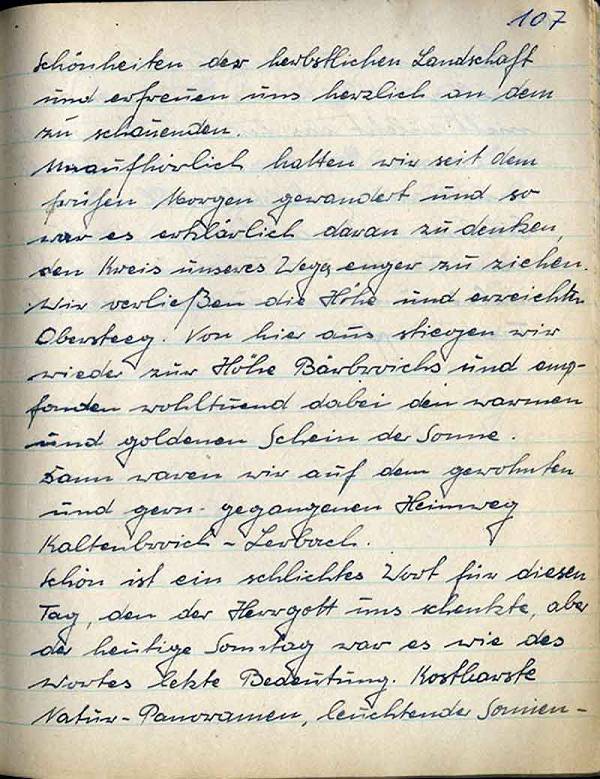 107
Schönheiten der herbstlichen Landschaft
und erfreuen uns herzlich an dem
zu schauenden.
Unaufhörlich hatten wir seit dem
frühen Morgen gewandert und so
war es erklärlich daran zu denken,
den Kreis unseres Wegs enger zu ziehen.
Wir verließen die Höhe und erreichten
Obersteeg. Von hier aus stiegen wir
wieder zur Höhe Bärbroichs und emp-
fanden wohltuend dabei den warmen
und goldenen Schein der Sonne.
Dann waren wir auf dem gewohnten
und gern gegangenen Heimweg
Kaltenbroich - Lerbach.
Schön ist ein schlichtes Wort für diesen
Tag, den der Herrgott uns schenkte, aber
der heutige Sonntag war es wie des
Wortes letzte Bedeutung. Kostbarste
Natur-Panoramen, leuchtender Sonnen-